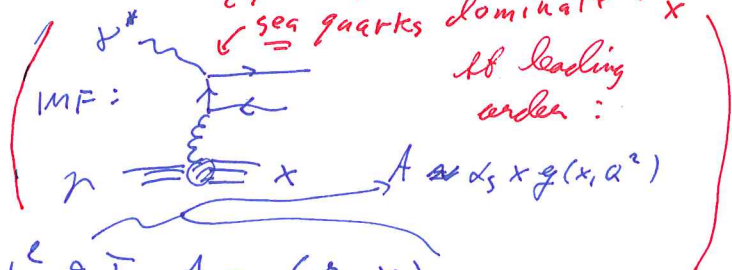 sea quarks dominate x
γ*
At leading
IMF:
order:
p x A ≈ α_s x g(x, Q²)